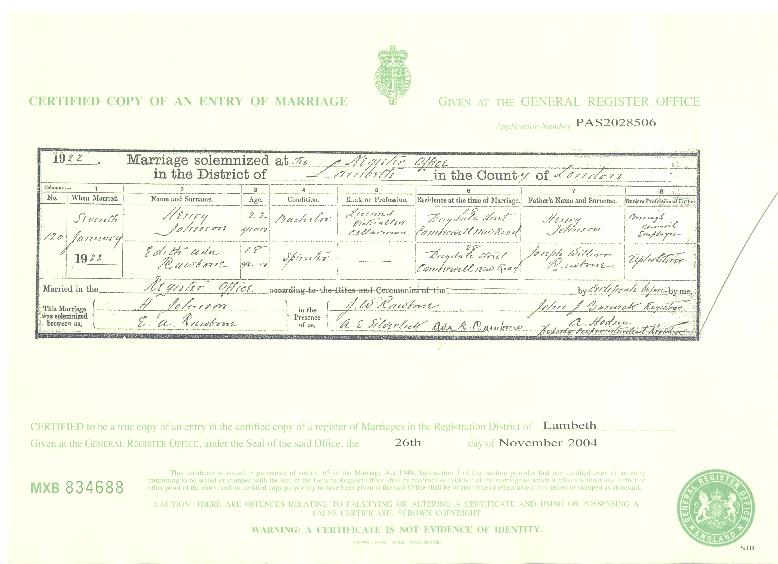 CERTIFIED COPY OF AN ENTRY OF MARRIAGE
GIVEN AT THE GENERAL REGISTER OFFICE
Application Number PAS2028506
1922. Marriage solemnized at The Register Office
in the District of Lambeth in the County of London
Columns:— 1 2 3 4 5 6 7 8
No. When Married. Name and Surname. Age. Condition. Rank or Profession. Residence at the time of Marriage. Father's Name and Surname. Rank or Profession of Father
120 Seventh January 1922
Henry Johnson 22 years Bachelor Licensed Victuallers Cellarman 28 Camberwell New Road Henry Johnson Borough Council Employee
Edith Ada Rawbone 18 years Spinster — 28 Camberwell New Road Joseph William Rawbone Upholsterer
Married in the Register Office according to the Rites and Ceremonies of the by Certificate before by me,
This Marriage was solemnized between us,
H Johnson
E. A. Rawbone
in the Presence of us,
J. W. Rawbone
Ada E. Rawbone
John J Registrar
Deputy Superintendent Registrar
CERTIFIED to be a true copy of an entry in the certified copy of a register of Marriages in the Registration District of Lambeth
Given at the GENERAL REGISTER OFFICE, under the Seal of the said Office, the 26th day of November 2004
MXB 834688
This certificate is issued in pursuance of section 65 of the Marriage Act 1949. Subsection 3 of that section provides that any certified copy of an entry
purporting to be sealed or stamped with the seal of the General Register Office shall be received as evidence of the marriage to which it relates without any further or
other proof of the entry, and no certified copy purporting to have been given in the said Office shall be of any force or effect unless it is sealed or stamped as aforesaid.
CAUTION: THERE ARE OFFENCES RELATING TO FALSIFYING OR ALTERING A CERTIFICATE AND USING OR POSSESSING A
FALSE CERTIFICATE. ©CROWN COPYRIGHT
WARNING: A CERTIFICATE IS NOT EVIDENCE OF IDENTITY.
GENERAL REGISTER OFFICE
ENGLAND
SJR